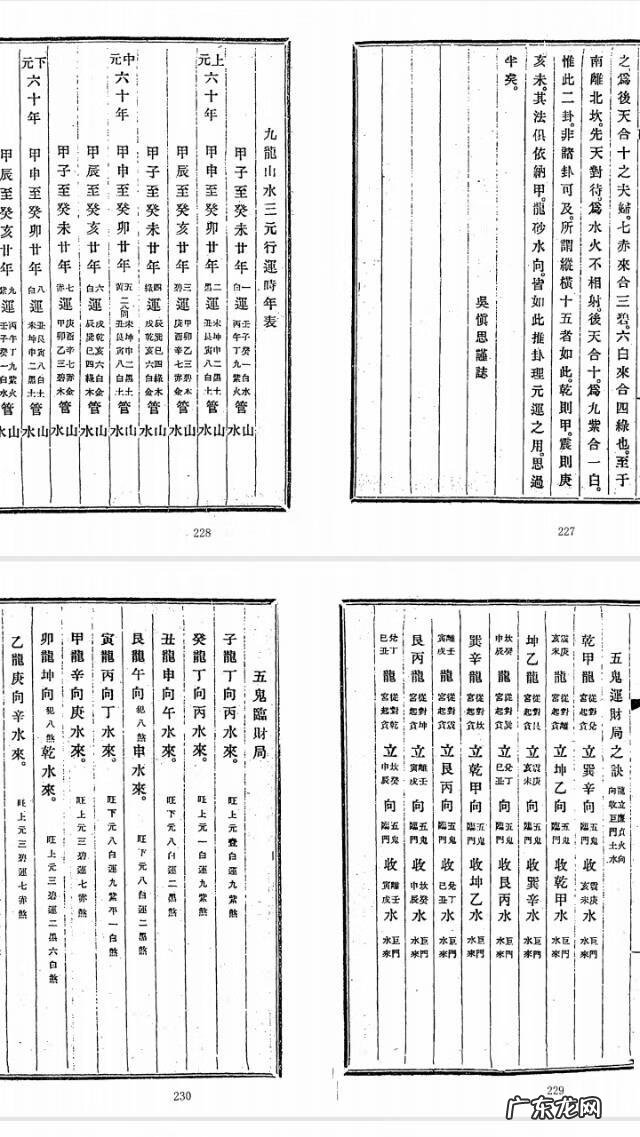 之爲後天合十之夫婦。七赤來合三碧。六白來合四綠也。至于
南離北坎。先天對待。爲水火不相射。後天合十。爲九紫合一白。
惟此二卦。非諸卦可及。所謂縱橫十五者如此。乾則甲。震則庚
亥未。其法俱依納甲。龍砂水向。皆如此推卦理元運之用。思過
半矣。
吳愼思謹誌
227
九龍山水三元行運時年表
甲子至癸未廿年 一白運 壬子癸一白水 丙午丁九紫火 管山水
上元六十年 甲申至癸卯廿年 二黑運 未坤申二黑土 丑艮寅八白土 管山水
甲辰至癸亥廿年 三碧運 甲卯乙三碧木 庚酉辛七赤金 管山水
甲子至癸未廿年 四綠運 辰巽巳四綠木 戌乾亥六白金 管山水
中元六十年 甲申至癸卯廿年 五黃運 二八同 未坤申二黑土 丑艮寅八白土 管山水
甲辰至癸亥廿年 六白運 戌乾亥六白金 辰巽巳四綠木 管山水
甲子至癸未廿年 七赤運 庚酉辛七赤金 甲卯乙三碧木 管山水
下元六十年 甲申至癸卯廿年 八白運 丑艮寅八白土 未坤申二黑土 管山水
甲辰至癸亥廿年 九紫運 丙午丁九紫火 壬子癸一白水 管山水
228
五鬼運財局之訣 龍立廉貞火向 向收巨門土水
乾甲龍 從對兌宮起貪 立巽辛向 五鬼臨門 收震庚亥未水 巨門水來
震庚亥未龍 從對離宮起貪 立坤乙向 五鬼臨門 收乾甲水 巨門水來
坤乙龍 從對艮宮起貪 立震庚亥未向 五鬼臨門 收巽辛水 巨門水來
坎癸申辰龍 從對巽宮起貪 立兌丁巳丑向 五鬼臨門 收艮丙水 巨門水來
巽辛龍 從對坎宮起貪 立乾甲向 五鬼臨門 收坤乙水 巨門水來
離壬寅戌龍 從對震宮起貪 立艮丙向 五鬼臨門 收兌丁巳丑水 巨門水來
艮丙龍 從對坤宮起貪 立離壬寅戌向 五鬼臨門 收坎癸申辰水 巨門水來
兌丁巳丑龍 從對乾宮起貪 立坎癸申辰向 五鬼臨門 收離壬寅戌水 巨門水來
229
五鬼臨財局
子龍丁向丙水來。 旺上元壹白運九紫煞
癸龍丁向丙水來。 旺上元一白運九紫煞
丑龍申向午水來。 旺下元八白運二黑煞
艮龍午向犯八煞申水來。 旺下元八白運二黑煞
寅龍丙向丁水來。 旺下元八白運九紫平一白煞
甲龍辛向庚水來。 旺上元三碧運七赤煞
卯龍坤向犯八煞乾水來。 旺上元三碧運二黑六白煞
乙龍庚向辛水來。 旺上元三碧運七赤煞
230
广东龙网